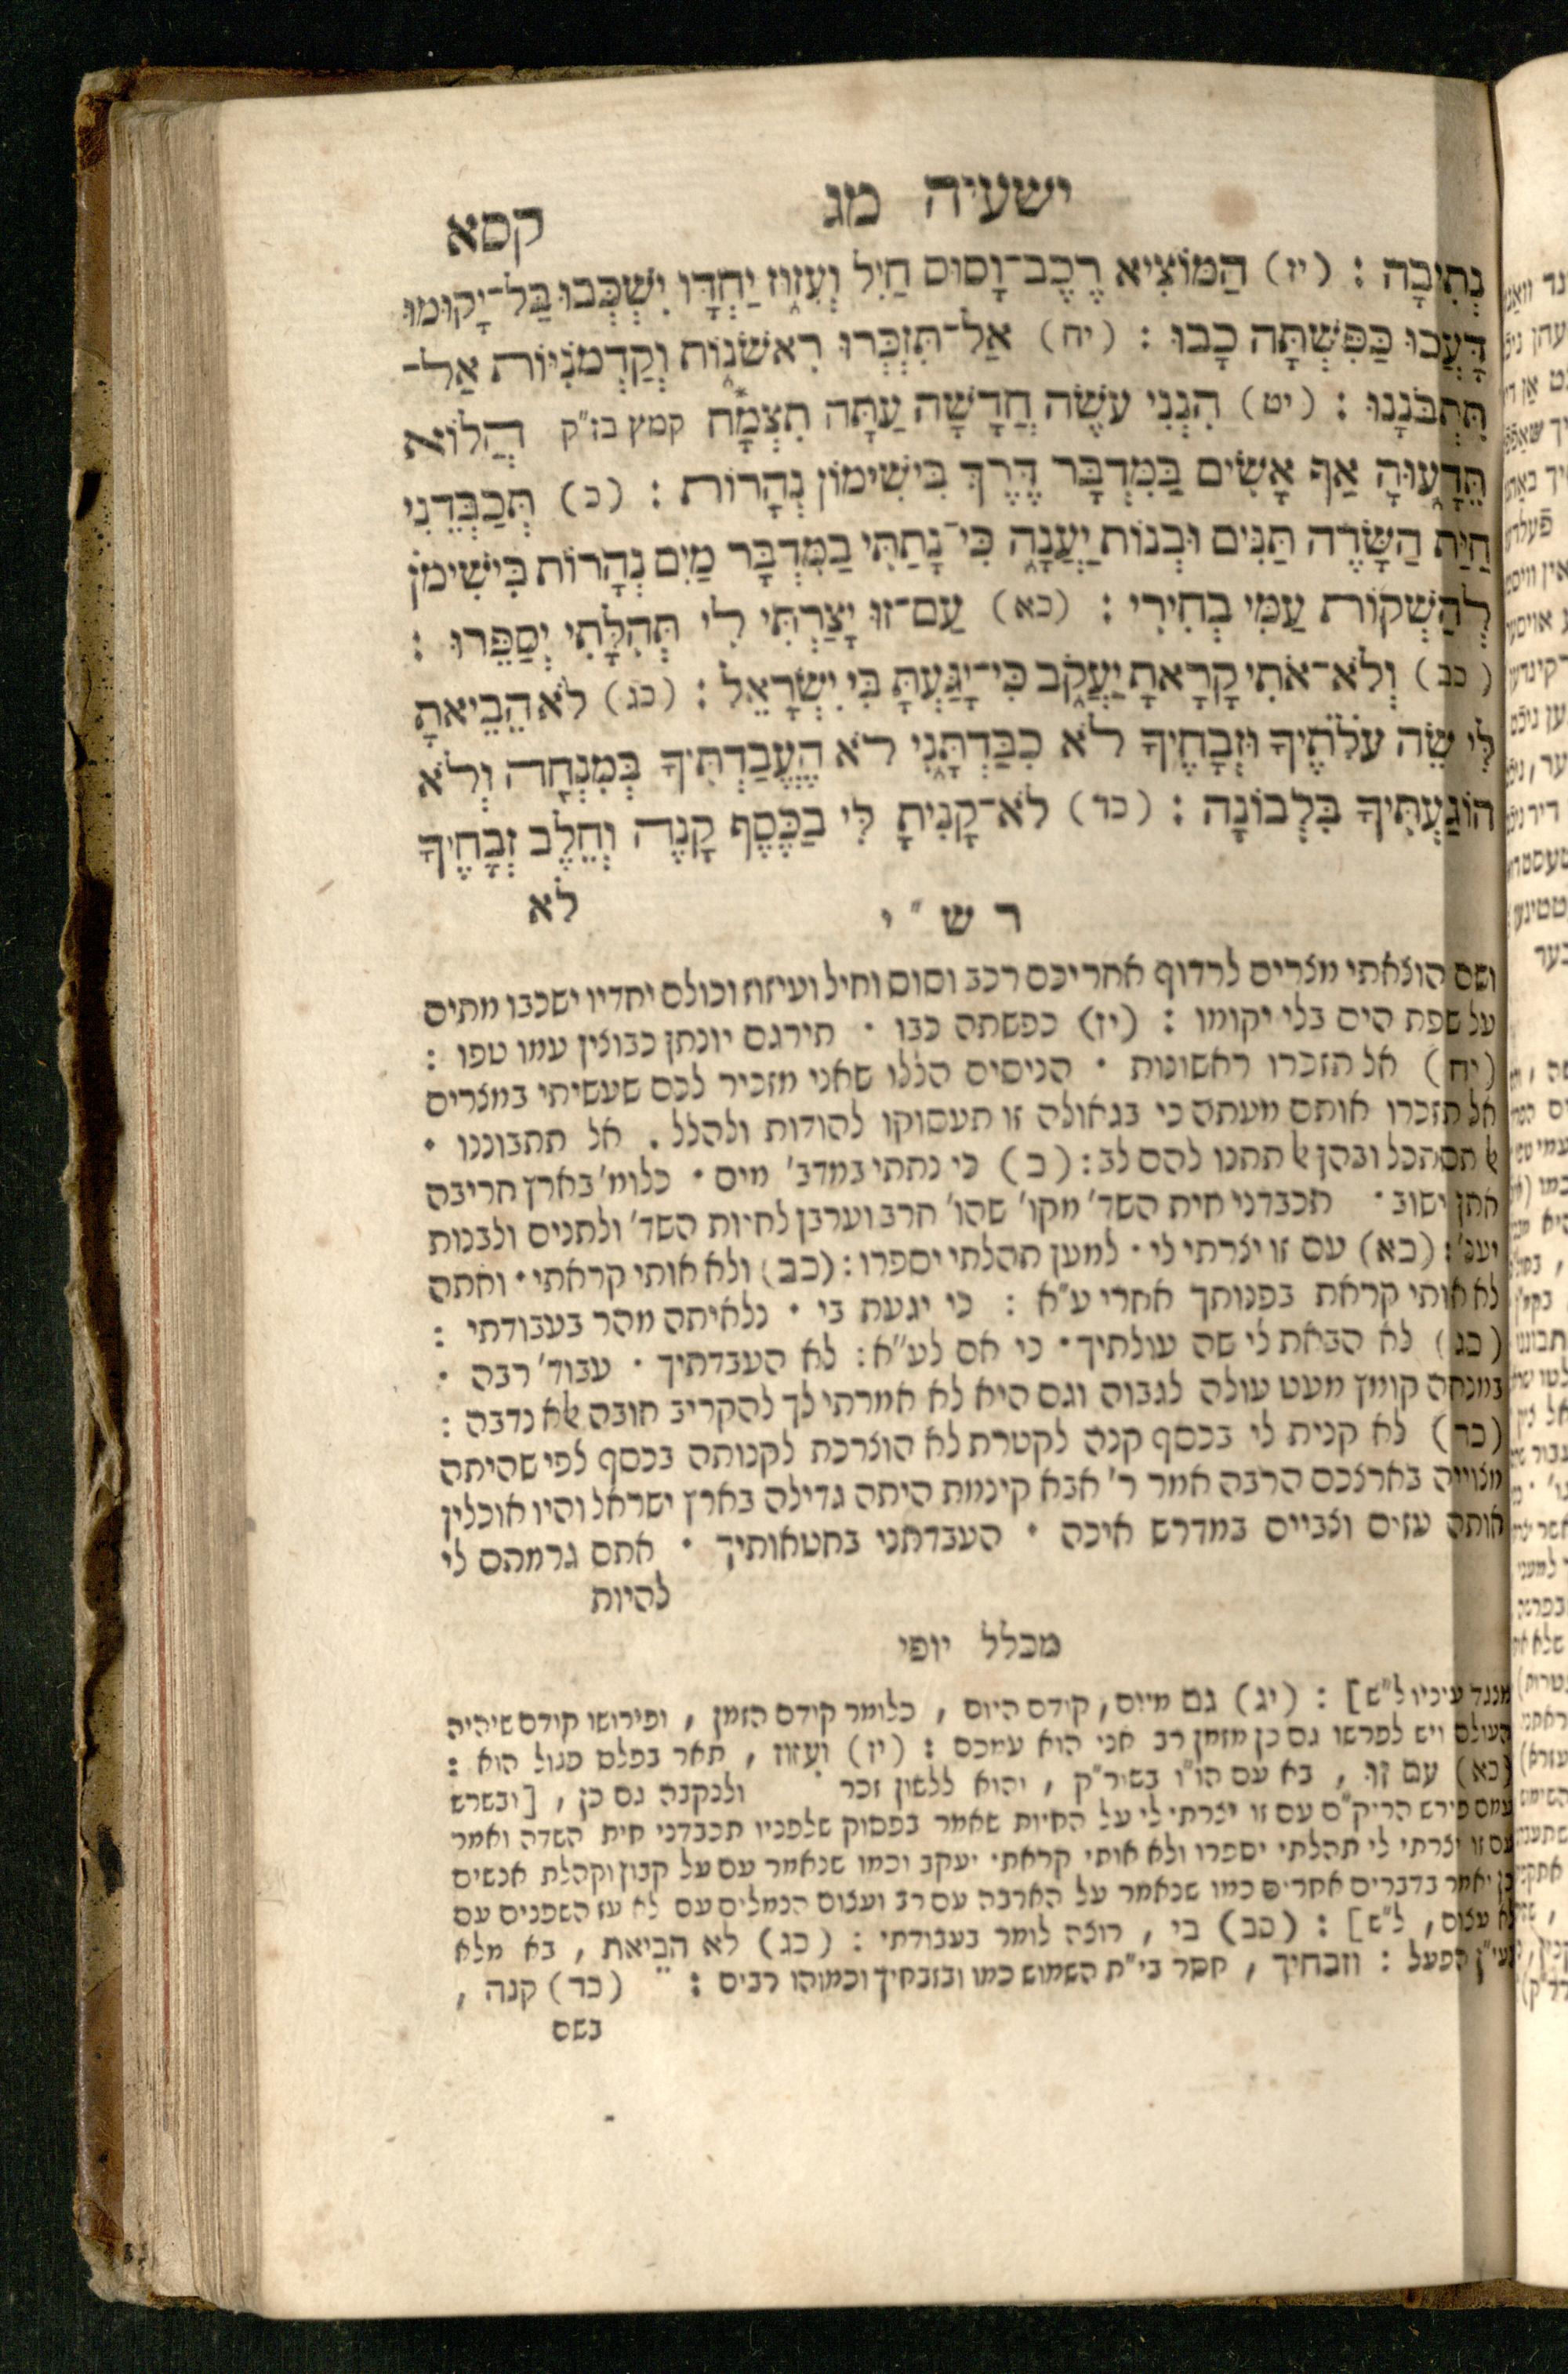 ישעיה מג
קסא
נְתִיבָה : (יז) הַמּוֹצִיא רֶכֶב־וָסוּס חַיִל וְעִזוּז יַחְדָּו יִשְׁכְּבוּ בַּל־יָקוּמוּ
דָּעֲכוּ כַּפִּשְׁתָּה כָבוּ : (יח) אַל־תִּזְכְּרוּ רִאשֹׁנוֹת וְקַדְמֹנִיּוֹת אַל־
תִּתְבֹּנָנוּ : (יט) הִנְנִי עֹשֶׂה חֲדָשָׁה עַתָּה תִצְמָח קמץ בז"ק הֲלוֹא
תֵּדָעוּהָ אַף אָשִׂים בַּמִּדְבָּר דֶּרֶךְ בִּישִׁימוֹן נְהָרוֹת : (כ) תְּכַבְּדֵנִי
חַיַּת הַשָּׂדֶה תַּנִּים וּבְנוֹת יַעֲנָה כִּי־נָתַתִּי בַמִּדְבָּר מַיִם נְהָרוֹת בִּישִׁימֹן
לְהַשְׁקוֹת עַמִּי בְחִירִי : (כא) עַם־זוּ יָצַרְתִּי לִי תְּהִלָּתִי יְסַפֵּרוּ :
(כב) וְלֹא־אֹתִי קָרָאתָ יַעֲקֹב כִּי־יָגַעְתָּ בִּי יִשְׂרָאֵל : (כג) לֹא הֵבֵיאתָ
לִּי שֵׂה עֹלֹתֶיךָ וּזְבָחֶיךָ לֹא כִבַּדְתָּנִי לֹא הֶעֱבַדְתִּיךָ בְּמִנְחָה וְלֹא
הוֹגַעְתִּיךָ בִּלְבוֹנָה : (כד) לֹא־קָנִיתָ לִּי בַכֶּסֶף קָנֶה וְחֵלֶב זְבָחֶיךָ
לֹא
רש"י
ושם הוצאתי מצרים לרדוף אחריכם רכב וסוס וחיל ועיזוז וכולם יחדיו ישכבו מתים
על שפת הים בלי יקומו : (יז) כפשתה כבו · תירגם יונתן כבוצין עמו טפו :
(יח) אל תזכרו ראשונות · הניסים הללו שאני מזכיר לכם שעשיתי במצרים
אל תזכרו אותם מעתה כי בגאולה זו תעסוקו להודות ולהלל . אל תתבוננו ·
אל תסתכל ובהן אל תתנו להם לב : (כ) כי נתתי במדב' מים · כלומ' בארץ חריבה
אתן ישוב · תכבדני חית השד' מקו' שהו' חרב וערבן לחיות השד' ולתנים ולבנות
יענ' : (כא) עם זו יצרתי לי · למען תהלתי יספרו : (כב) ולא אותי קראתי · ואתה
לא אותי קראת בפנותך אחרי ע"א : כי יגעת בי · נלאיתה מהר בעבודתי :
(כג) לא הבאת לי שה עולתיך · כי אם לע"א : לא העבדתיך · עבוד' רבה ·
במנחה קומץ מעט עולה לגבוה וגם היא לא אמרתי לך להקריב חובה אלא נדבה :
(כד) לא קנית לי בכסף קנה לקטרת לא הוצרכת לקנותה בכסף לפי שהיתה
מצוייה בארצכם הרבה אמר ר' אבא קינמת היתה גדילה בארץ ישראל והיו אוכלין
אותה עזים וצביים במדרש איכה · העבדתני בחטאותיך · אתם גרמהם לי
להיות
מכלל יופי
מנגד עיניו ל"ש] : (יג) גם מיום , קודם היום , כלומר קודם הזמן , ופירושו קודם שיהיה
העולם ויש לפרשו גם כן מזמן רב אני הוא עמכם : (יז) ועזוז , תאר בפלס סגול הוא :
(כא) עם זו , בא עם הו"ו בשור"ק , והוא ללשון זכר ולנקבה גם כן , [ובשרש
עמם פירש הריק"ם עם זו יצרתי לי על החיות שאמר בפסוק שלפניו תכבדני חית השדה ואמר
עם זו יצרתי לי תהלתי יספרו ולא אותי קראתי יעקב וכמו שנאמר עם על קבוץ וקהלת אנשים
כן יאמר בדברים אחרים כמו שנאמר על הארבה עם רב ועצום הנמלים עם לא עז השפנים עם
לא עצום , ל"ש] : (כב) בי , רוצה לומר בעבודתי : (כג) לא הביאת , בא מלא
בעי"ן הפעל : וזבחיך , חסר בי"ת השמוש כמו ובזבחיך וכמוהו רבים : (כד) קנה ,
בשם